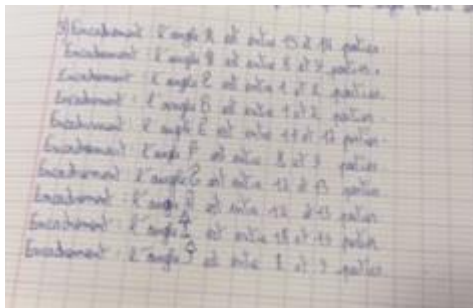 3) Encadrement : L'angle A est entre 13 et 14 parties.
Encadrement : L'angle B est entre et parties.
Encadrement : L'angle C est entre 1 et 2 parties.
Encadrement : L'angle D est entre 1 et 2 parties.
Encadrement : L'angle E est entre et 12 parties.
Encadrement : L'angle F est entre 8 et 9 parties.
Encadrement : L'angle G est entre 12 et 13 parties
Encadrement : L'angle H est entre 12 et 13 parties
Encadrement : L'angle I est entre 18 et 19 parties
Encadrement : L'angle J est entre 8 et 9 parties